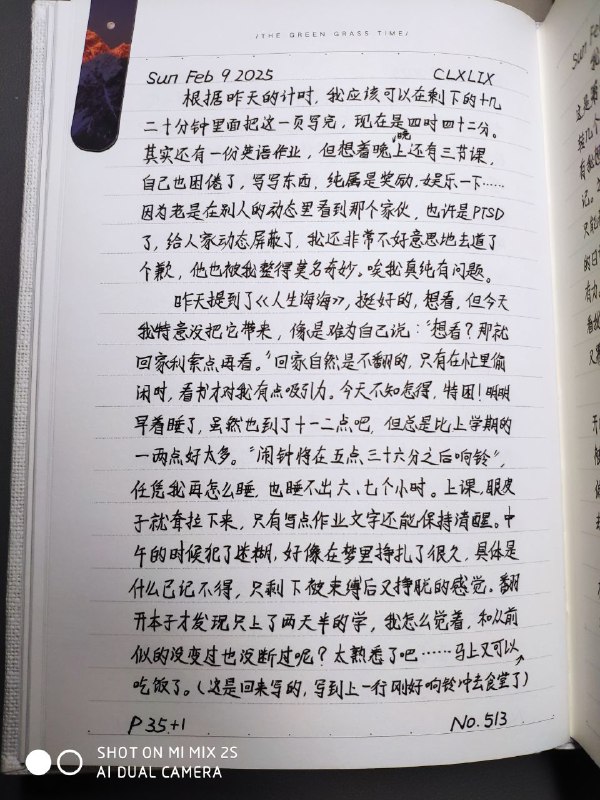 /THE GREEN GRASS TIME/
Sun Feb 9 2025 CLXLIX
根据昨天的计时，我应该可以在剩下的十几
二十分钟里面把这一页写完，现在是四时四十二分。
其实还有一份英语作业，但想着晚上还有三节课，
晚
自己也困倦了，写写东西，纯属是奖励、娱乐一下……
因为老是在别人的动态里看到那个家伙，也许是PTSD
了，给人家动态屏蔽了，我还非常不好意思地去道了
个歉，他也被我整得莫名奇妙。唉我真纯有问题。
昨天提到了《人生海海》，挺好的，想看，但今天
我特意没把它带来，像是难为自己说："想看？那就
回家利索点再看。"回家自然是不翻的，只有在忙里偷
闲时，看书才对我有点吸引力。今天不知怎得，特困！明明
早着睡了，虽然也到了十一二点吧，但总是比上学期的
一两点好太多。"闹钟将在五点三十六分之后响铃"，
任凭我再怎么睡，也睡不出六、七个小时。上课，眼皮
子就耷拉下来，只有写点作业文字还能保持清醒。中
午的时候犯了迷糊，好像在梦里挣扎了很久，具体是
什么已记不得，只剩下被束缚后又挣脱的感觉。翻
开本子才发现只上了两天半的学，我怎么觉着，和从前
似的没变过也没断过呢？太熟悉了吧……马上又可以
吃饭了。(这是回来写的，写到上一行刚好响铃冲去食堂了)
P35+1 No.513
SHOT ON MI MIX 2S
AI DUAL CAMERA
Sun Feb